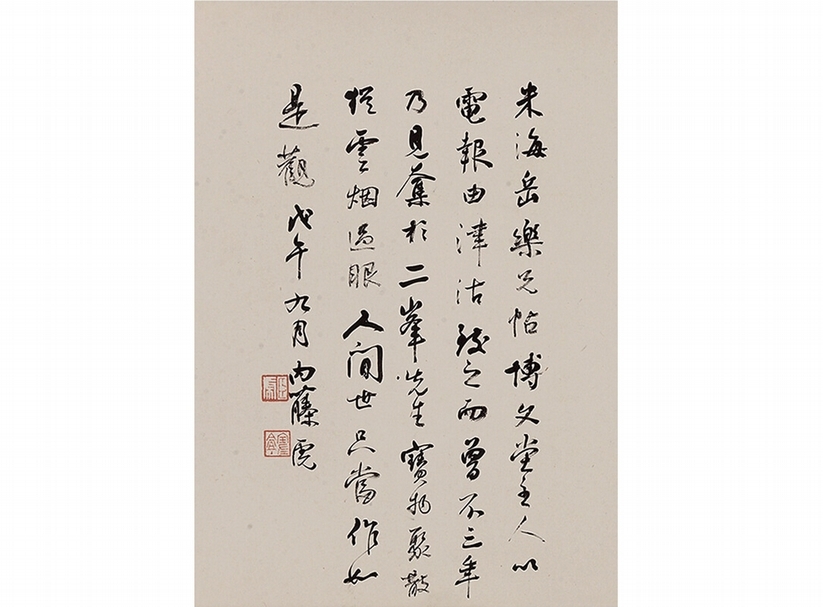 米海岳樂兄帖博文堂主人以
電報由津沽致之而曾不三年
乃見奪於二峯先生寶物聚散
猶雲烟過眼人間世只當作如
是觀戊午九月内藤虎